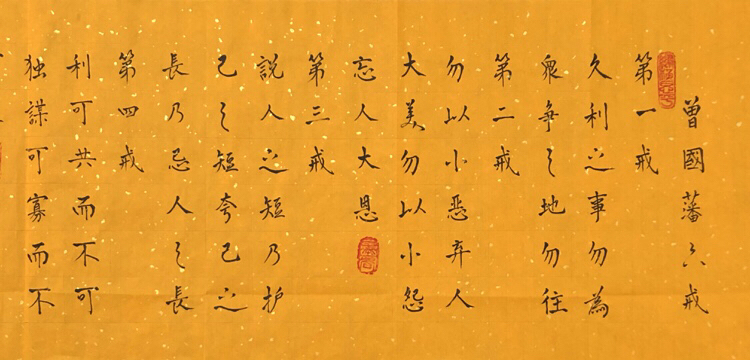 曾國藩六戒
第一戒
久利之事勿為
眾爭之地勿往
第二戒
勿以小惡弃人
大美勿以小怨
忘人大恩
第三戒
說人之短乃护
己之短夸己之
長乃忌人之長
第四戒
利可共而不可
独謀可寡而不